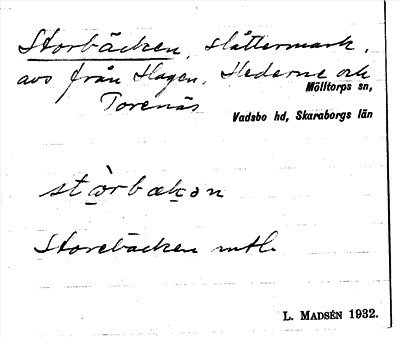 Storbäcken, slåttermark,
avs från Hagen, Hederne och
Mölltorps sn,
Torenäs
Vadsbo hd, Skaraborgs län
stòrbækən
Storebäcken mtl.
L. MADSÉN 1932.